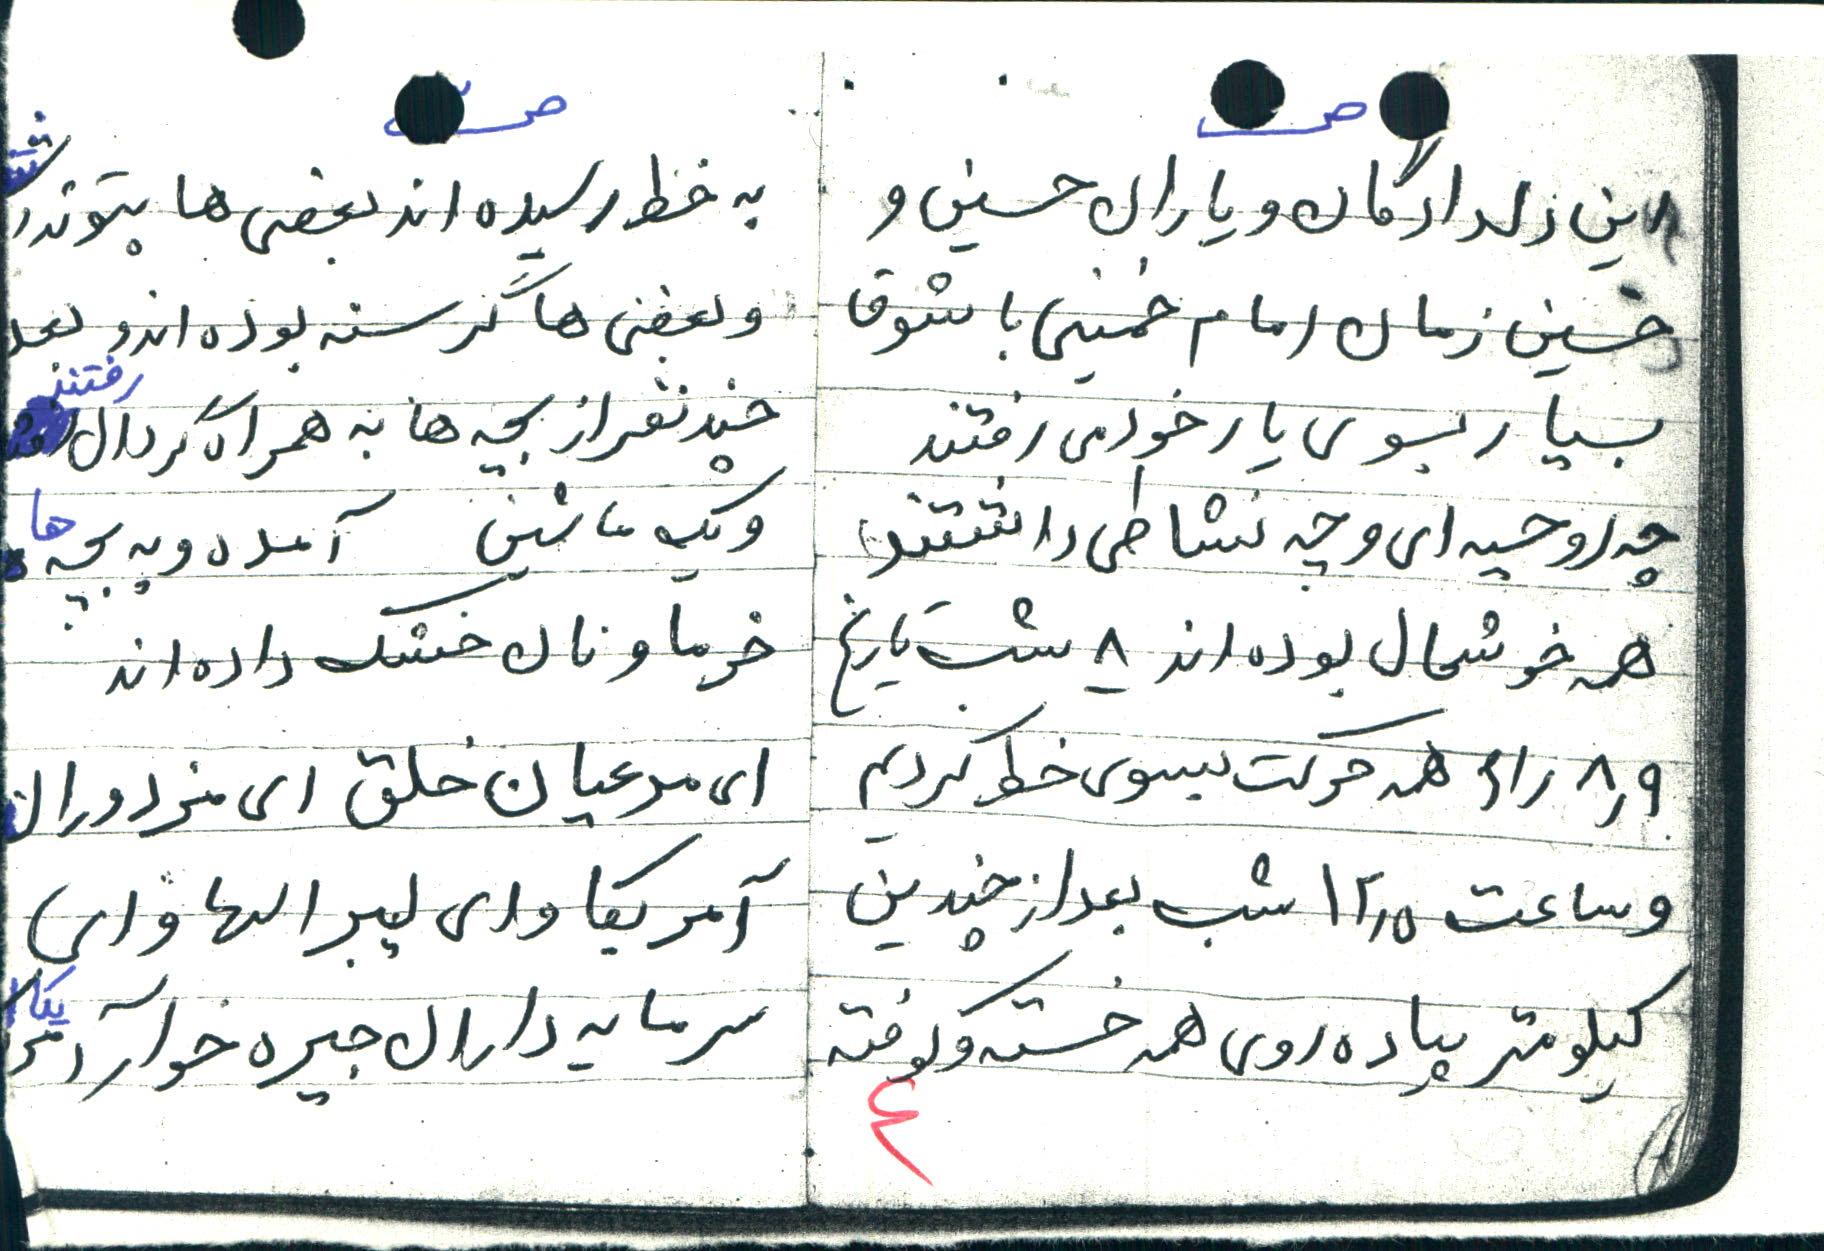 ص
این دلدادگان و یاران حسین و
حسین زمان امام خمینی با شوق
بسیار بسوی یار خود می رفتند
چه روحیه ای و چه نشاطی داشتند
همه خوشحال بوده اند ۸ شب تاریخ
۹ر۸ راه همه حرکت بسوی خط کردیم
و ساعت ۱۲٫۵ شب بعد از چندین
کیلومتر پیاده روی همه خسته و کوفته
۴
ص
به خط رسیده اند بعضی ها
و بعضی ها گرسنه بوده اند و بعد
چند نفر از بچه ها به همراه گردان رفتند
و یک ماشین آمده و به بچه ها
خرما و نان خشک داده اند
ای مدعیان خلق ای مزدوران
آمریکا و ای لیبرالها و ای
سرمایه داران جیره خوار آمریکا